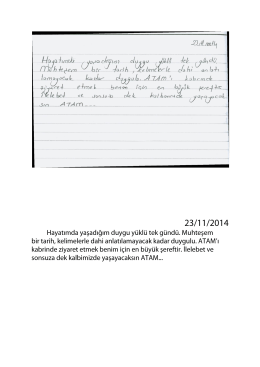 23.11.2014
Hayatımda yaşadığım duygu yüklü tek gündü.
Muhteşem bir tarih, kelimelerle dahi anlatı
lamayacak kadar duygulu. ATAM'ı kabrinde
ziyaret etmek benim için en büyük şereftir.
İlelebet ve sonsuza dek kalbimizde yaşayacak
sın ATAM.....
23/11/2014
Hayatımda yaşadığım duygu yüklü tek gündü. Muhteşem
bir tarih, kelimelerle dahi anlatılamayacak kadar duygulu. ATAM'ı
kabrinde ziyaret etmek benim için en büyük şereftir. İlelebet ve
sonsuza dek kalbimizde yaşayacaksın ATAM...